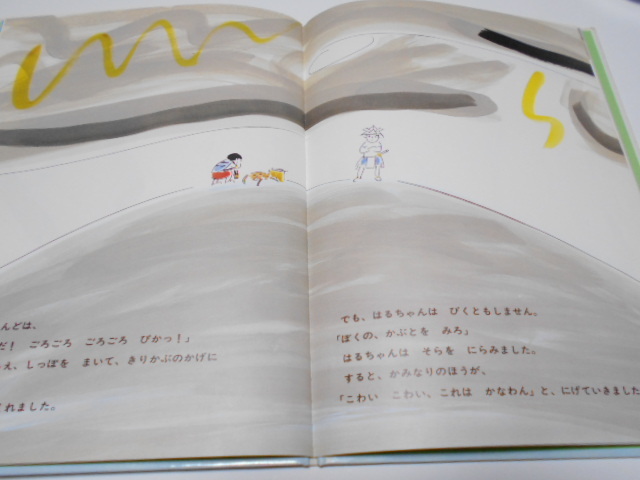 んどは、
だ！　ごろごろ　ごろごろ　ぴかっ！」
え、しっぽを　まいて、きりかぶのかげに
れました。
でも、はるちゃんは　びくともしません。
「ぼくの、かぶとを　みろ」
はるちゃんは　そらを　にらみました。
すると、かみなりのほうが、
「こわい　こわい、これは　かなわん」と、にげていきました